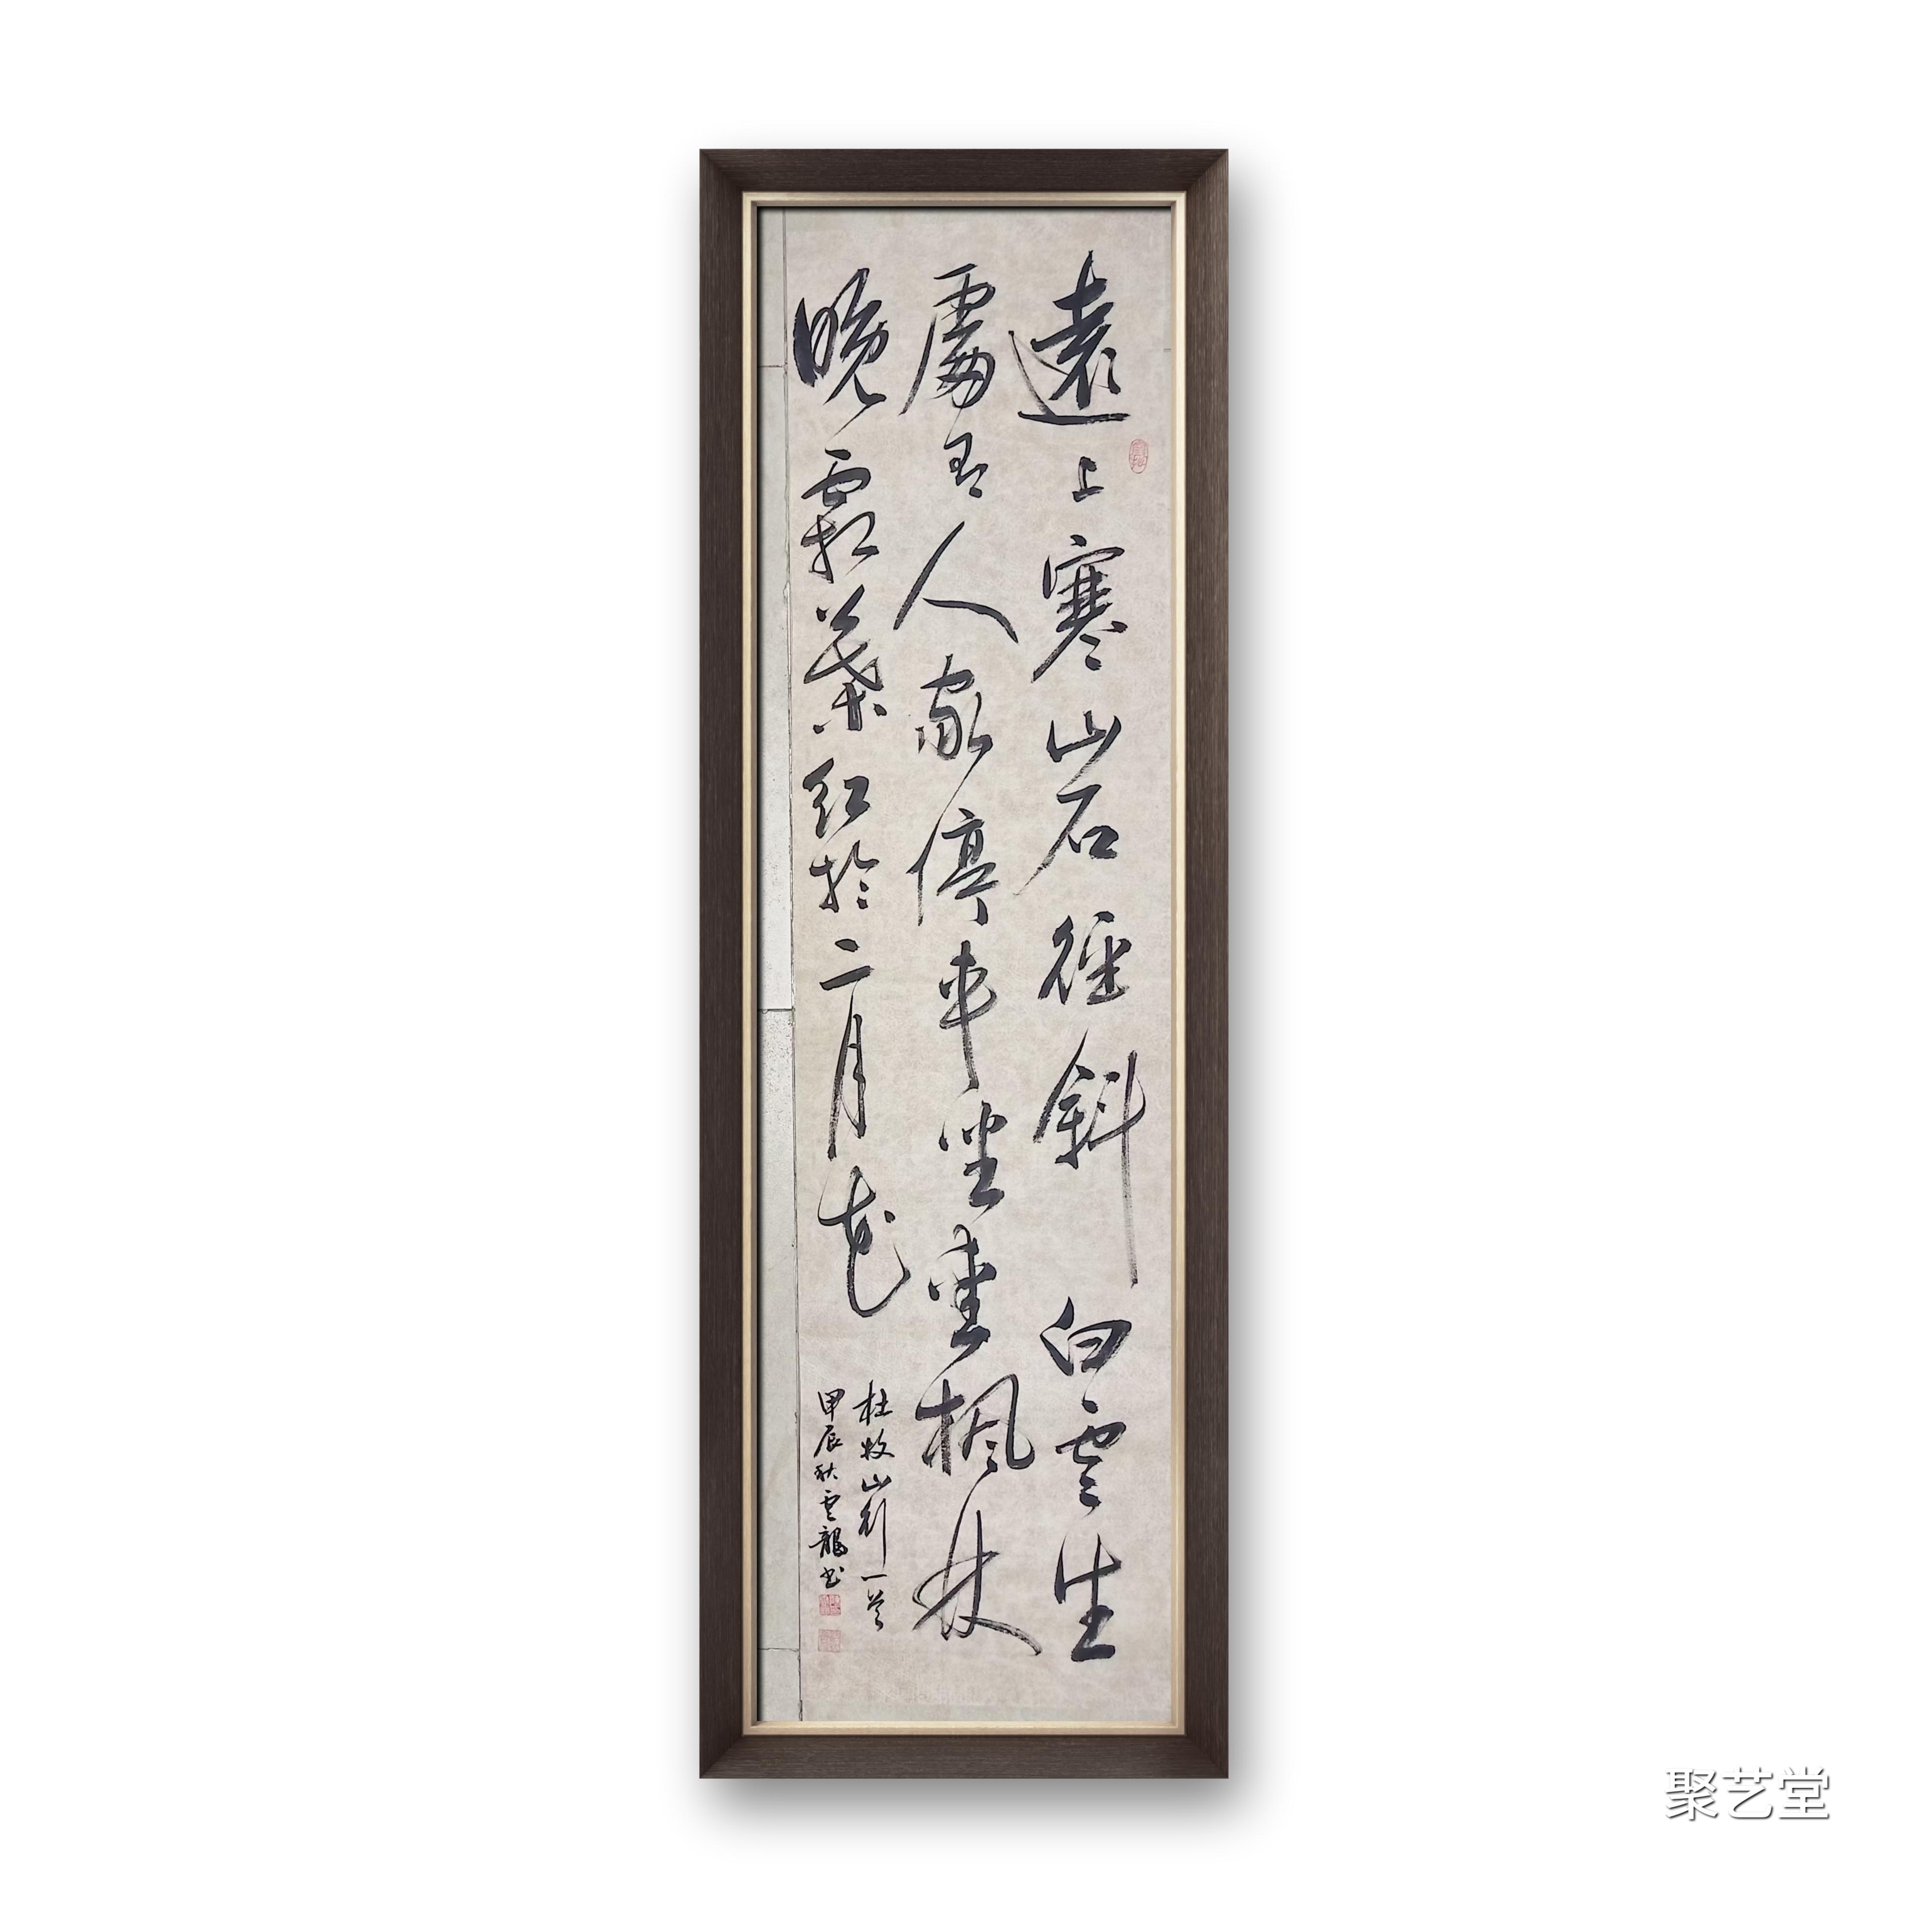 遠上寒山石徑斜白雲生
處有人家停車坐愛楓林
晚霜葉紅於二月花
杜牧山行一首
甲辰秋雲龍書
聚艺堂